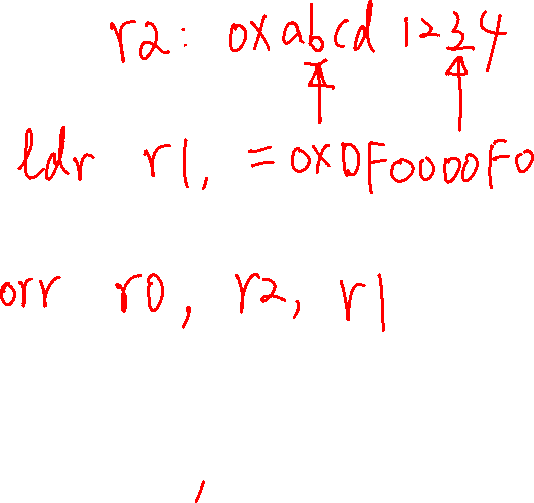 r2: 0xabcd 1234
ldr r1, =0xDF0000F0
orr r0, r2, r1
,